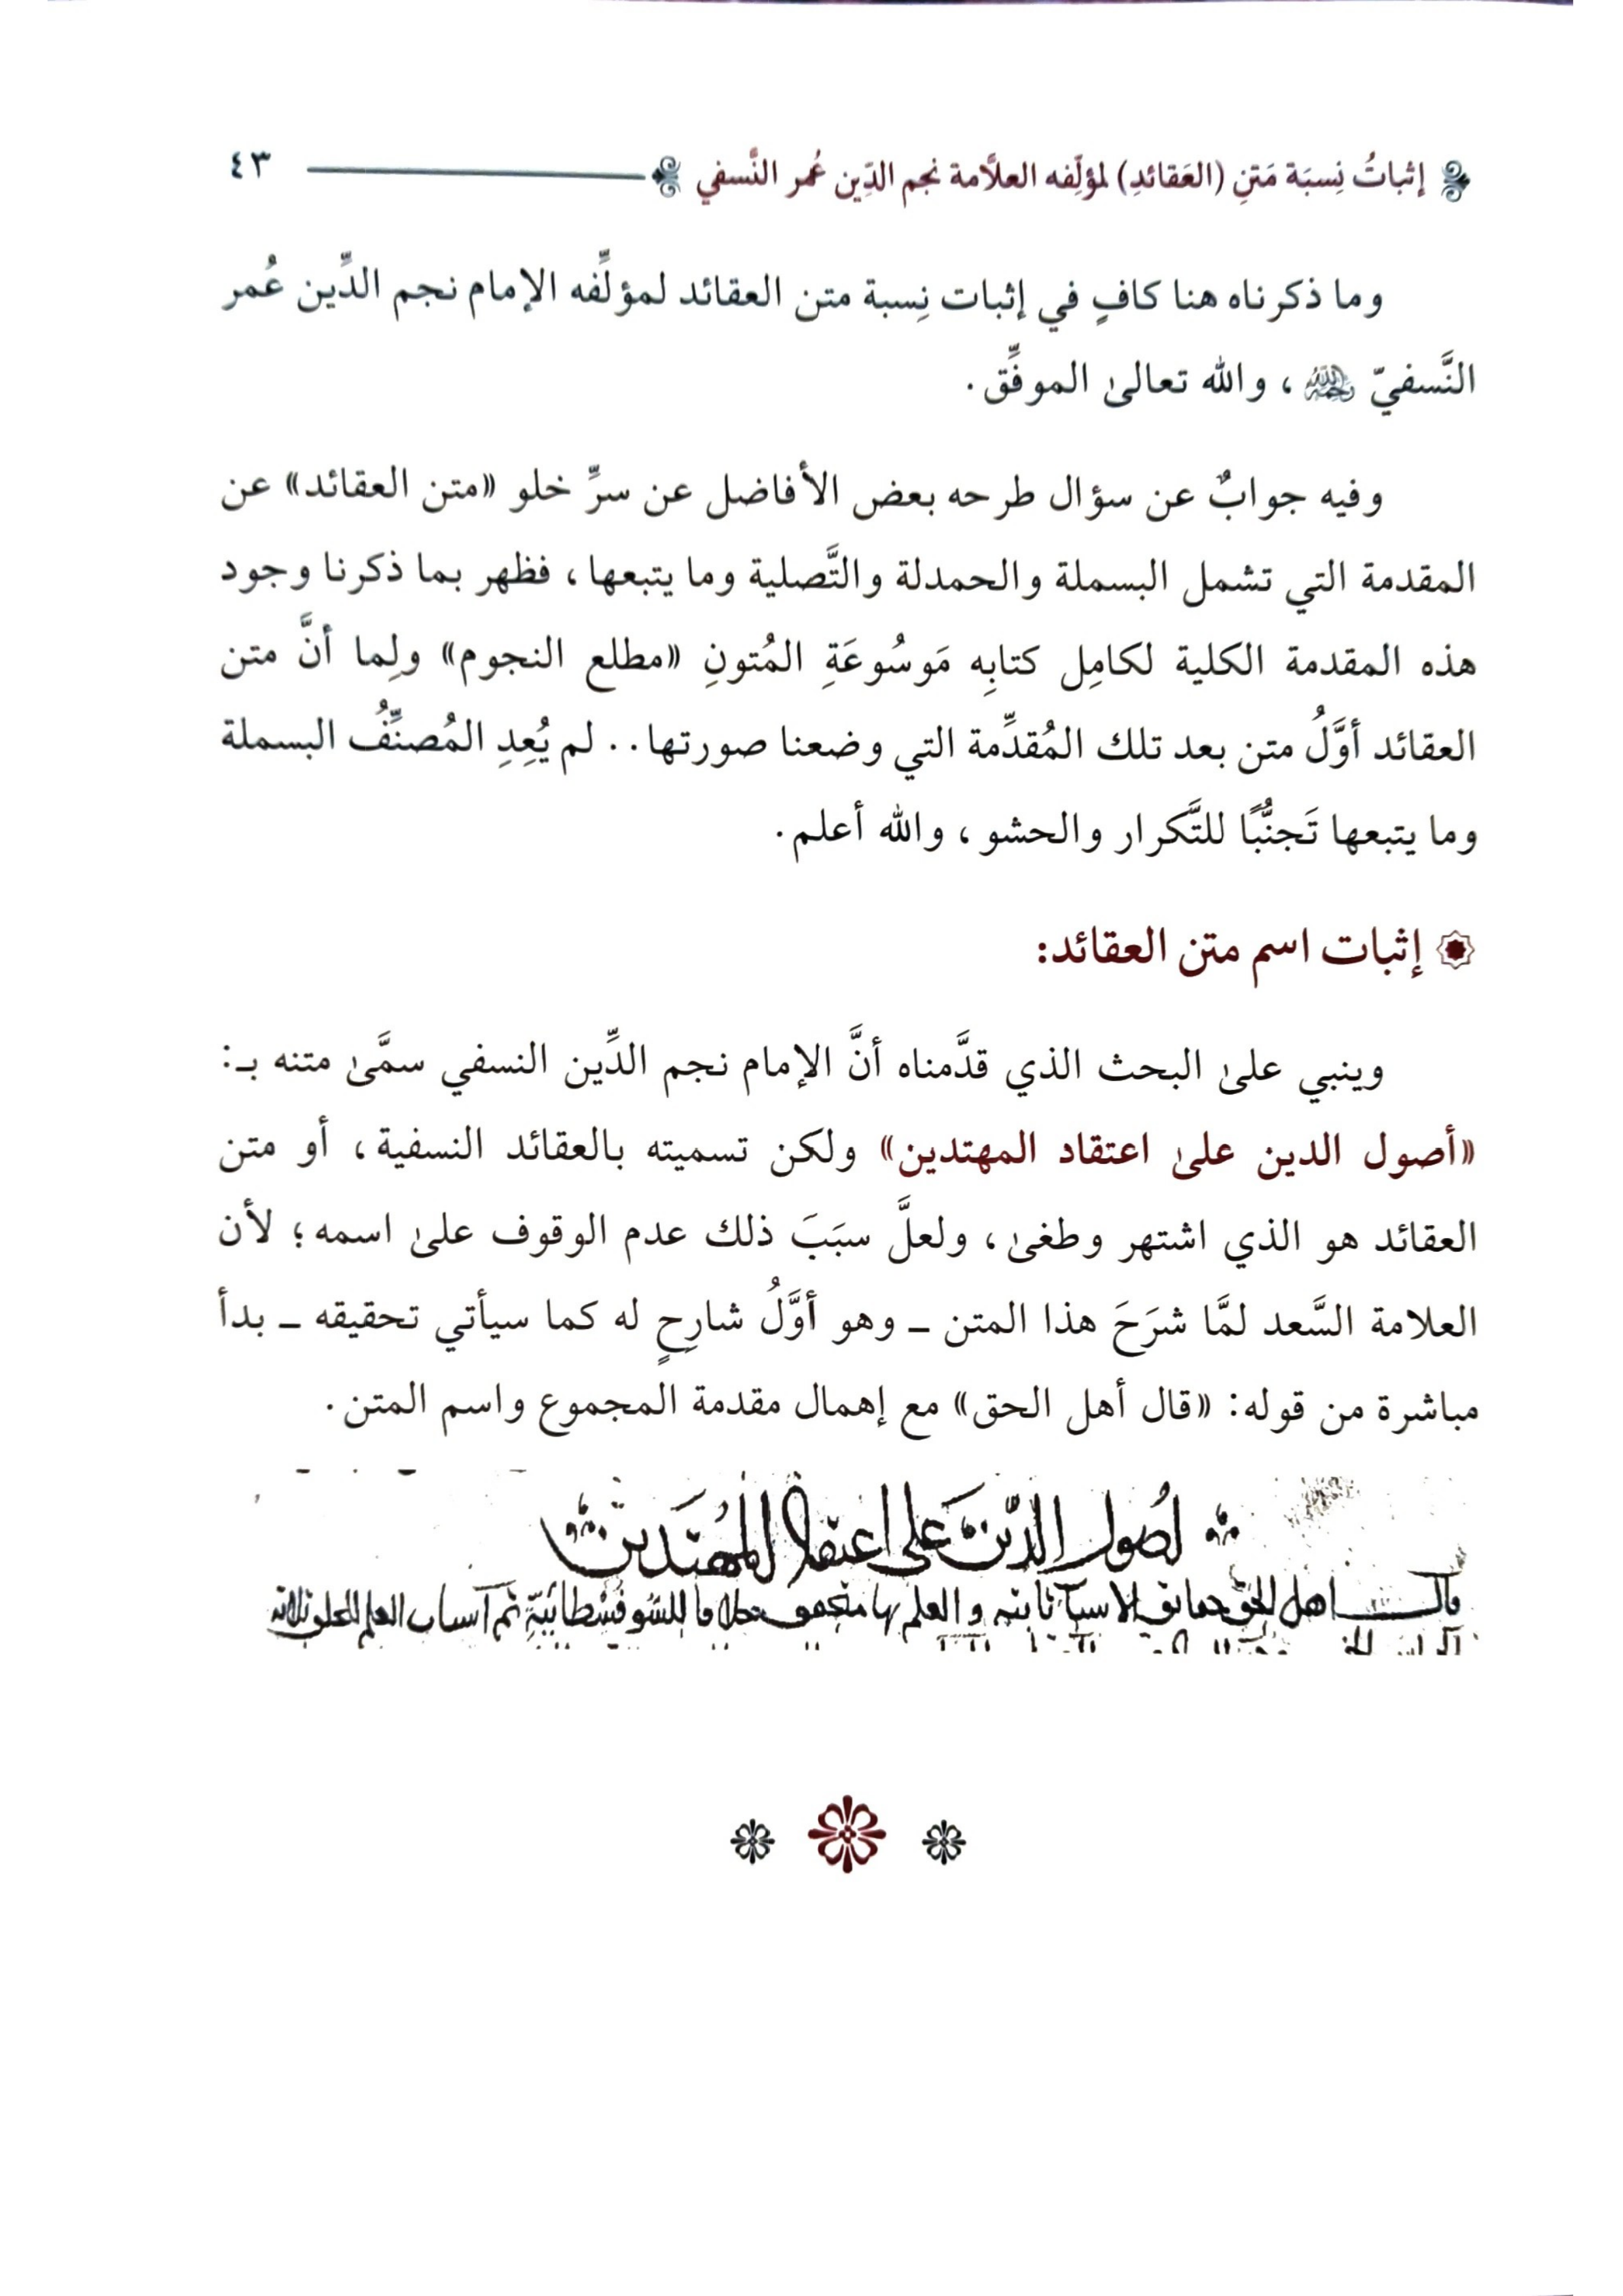 إثباتُ نِسبَة مَتنِ (العَقائدِ) لمؤلِّفه العلاَّمة نجم الدِّين عُمر النَّسفي ٤٣
وما ذكرناه هنا كافٍ في إثبات نِسبة متن العقائد لمؤلِّفه الإمام نجم الدِّين عُمر
النَّسفيّ رحمه الله، والله تعالىٰ الموفِّق.
وفيه جوابٌ عن سؤال طرحه بعض الأفاضل عن سرِّ خلو «متن العقائد» عن
المقدمة التي تشمل البسملة والحمدلة والتَّصلية وما يتبعها، فظهر بما ذكرنا وجود
هذه المقدمة الكلية لكامِل كتابِه مَوسُوعَةِ المُتونِ «مطلع النجوم» ولِما أنَّ متن
العقائد أوَّلُ متن بعد تلك المُقدِّمة التي وضعنا صورتها.. لم يُعِدِ المُصنِّفُ البسملة
وما يتبعها تَجنُّبًا للتَّكرار والحشو، والله أعلم.
إثبات اسم متن العقائد:
وينبي علىٰ البحث الذي قدَّمناه أنَّ الإمام نجم الدِّين النسفي سمَّىٰ متنه بـ:
«أصول الدين علىٰ اعتقاد المهتدين» ولكن تسميته بالعقائد النسفية، أو متن
العقائد هو الذي اشتهر وطغىٰ، ولعلَّ سبَبَ ذلك عدم الوقوف علىٰ اسمه؛ لأن
العلامة السَّعد لمَّا شرَحَ هذا المتن ـ وهو أوَّلُ شارِحٍ له كما سيأتي تحقيقه ـ بدأ
مباشرة من قوله: «قال أهل الحق» مع إهمال مقدمة المجموع واسم المتن.
اصُول الدّين على اعتقاد المُهتَدين
قال اهل الحق حقايق الاشيآ ثابته والعلم بها متحقق خلافا للسُّوفسْطائيّةِ ثم اسباب العلم للخلق ثلاثه